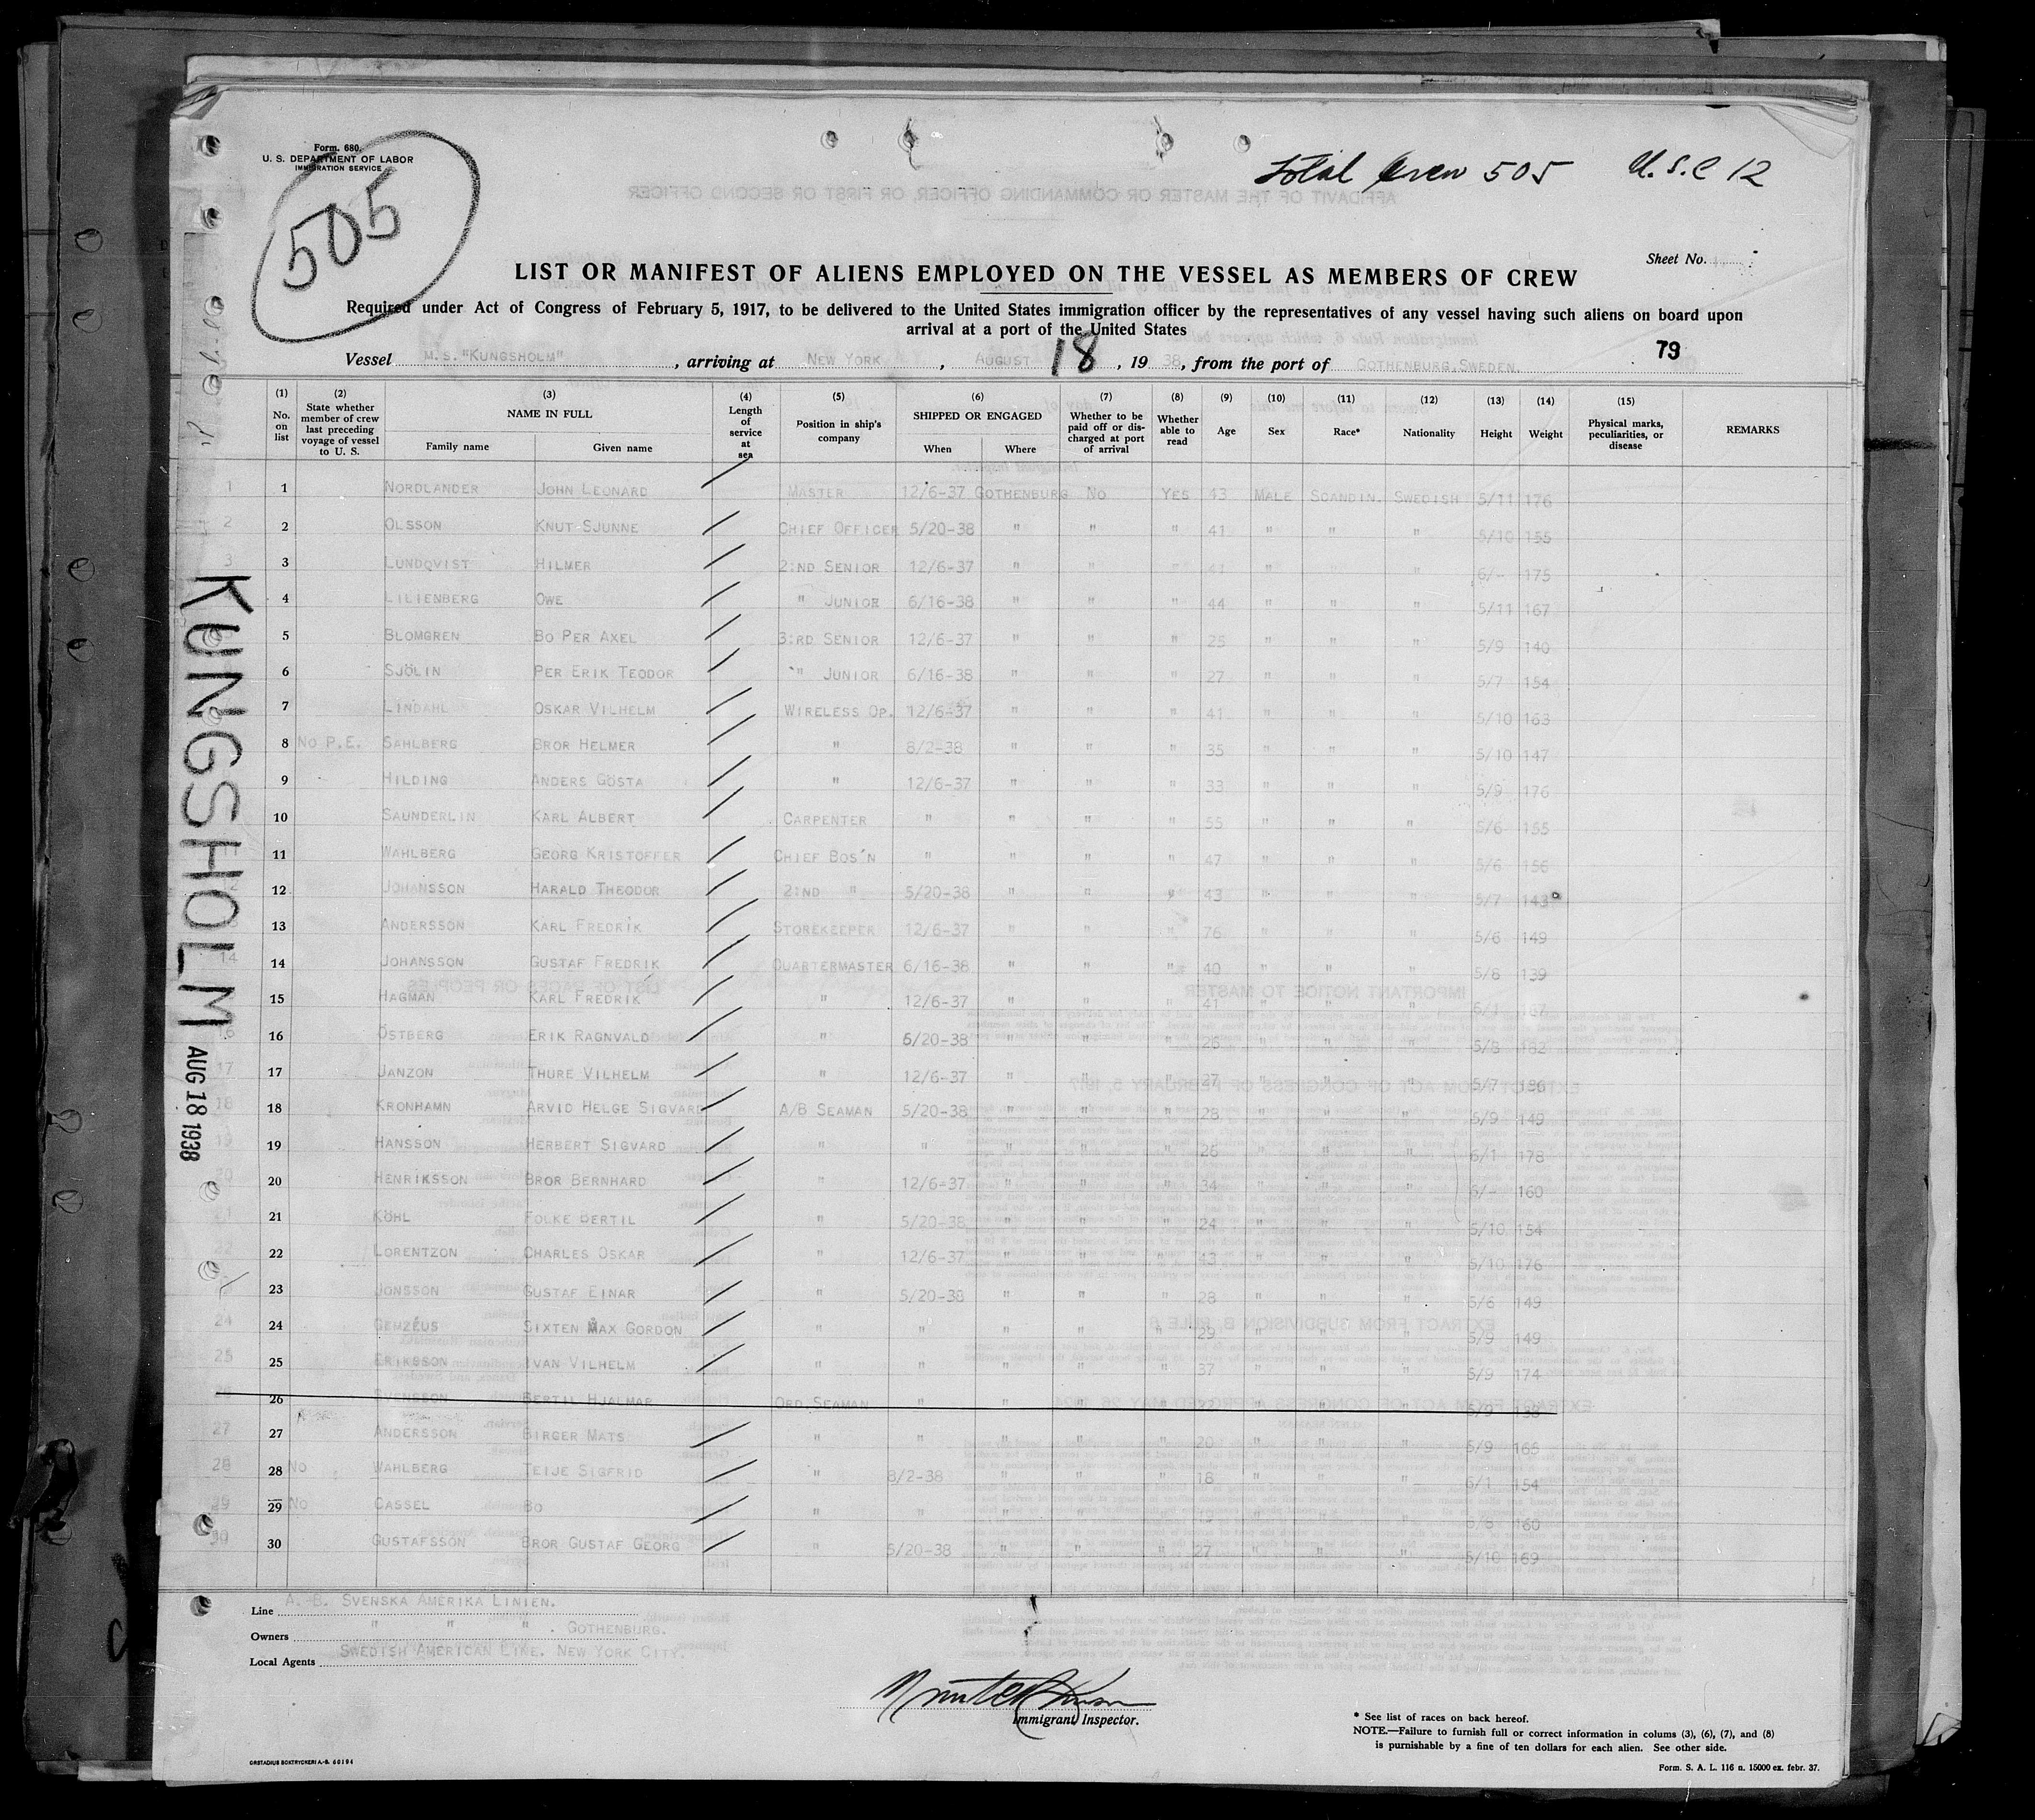 Form. 680.
U. S. DEPARTMENT OF LABOR
IMMIGRATION SERVICE
505
Total Crew 505 U.S.C 12
Sheet No.
LIST OR MANIFEST OF ALIENS EMPLOYED ON THE VESSEL AS MEMBERS OF CREW
Required under Act of Congress of February 5, 1917, to be delivered to the United States immigration officer by the representatives of any vessel having such aliens on board upon
arrival at a port of the United States
79
Vessel M.S. "KUNGSHOLM", arriving at NEW YORK, AUGUST 18, 1938, from the port of GOTHENBURG, SWEDEN.
(1) No. on list (2) State whether member of crew last preceding voyage of vessel to U. S. (3) NAME IN FULL Family name Given name (4) Length of service at sea (5) Position in ship's company (6) SHIPPED OR ENGAGED When Where (7) Whether to be paid off or discharged at port of arrival (8) Whether able to read (9) Age (10) Sex (11) Race* (12) Nationality (13) Height (14) Weight (15) Physical marks, peculiarities, or disease REMARKS
1 NORDLANDER JOHN LEONARD MASTER 12/6-37 GOTHENBURG NO YES 43 MALE SCANDIN. SWEDISH 5/11 176
2 OLSSON KNUT SJUNNE CHIEF OFFICER 5/20-38 " " " 41 " " " 5/10 155
3 LUNDQVIST HILMER 2:ND SENIOR 12/6-37 " " " 41 " " " 6/- 175
4 LILIENBERG OWE " JUNIOR 6/16-38 " " " 44 " " " 5/11 167
5 BLOMGREN BO PER AXEL 3:RD SENIOR 12/6-37 " " " 25 " " " 5/9 140
6 SJÖLIN PER ERIK TEODOR " JUNIOR 6/16-38 " " " 27 " " " 5/7 154
7 LINDAHL OSKAR VILHELM WIRELESS OP. 12/6-37 " " " 41 " " " 5/10 163
8 NO P.E. SAHLBERG BROR HELMER " 8/2-38 " " " 35 " " " 5/10 147
9 HILDING ANDERS GÖSTA " 12/6-37 " " " 33 " " " 5/9 176
10 SAUNDERLIN KARL ALBERT CARPENTER " " " " 55 " " " 5/6 155
11 WAHLBERG GEORG KRISTOFFER CHIEF BOS'N " " " " 47 " " " 5/6 156
12 JOHANSSON HARALD THEODOR 2:ND " 5/20-38 " " " 43 " " " 5/7 143
13 ANDERSSON KARL FREDRIK STOREKEEPER 12/6-37 " " " 76 " " " 5/6 149
14 JOHANSSON GUSTAF FREDRIK QUARTERMASTER 6/16-38 " " " 40 " " " 5/8 139
15 HAGMAN KARL FREDRIK " 12/6-37 " " " 41 " " " 6/1 167
16 ÖSTBERG ERIK RAGNVALD " 6/20-38 " " " 26 " " " 5/8 182
17 JANZON THURE VILHELM " 12/6-37 " " " 27 " " " 5/7
18 KRONHAMN ARVID HELGE SIGVARD A/B SEAMAN 5/20-38 " " " 28 " " " 5/9 149
19 HANSSON HERBERT SIGVARD " " " " " 26 " " " 6/1 178
20 HENRIKSSON BROR BERNHARD " 12/6-37 " " " 34 " " " 160
21 KÖHL FOLKE BERTIL " 5/20-38 " " " 24 " " " 5/10 154
22 LORENTZON CHARLES OSKAR " 12/6-37 " " " 43 " " " 5/10 176
23 JONSSON GUSTAF EINAR " 5/20-38 " " " 28 " " " 5/6 149
24 GEMZÉUS SIXTEN MAX GORDON " " " " " 29 " " " 5/9 149
25 ERIKSSON IVAN VILHELM " " " " " 37 " " " 5/9 174
26 SVENSSON BERTIL HJALMAR ORD.SEAMAN " " " " " " " 5/9 138
27 ANDERSSON BIRGER MATS " " " " " 20 " " " 5/9 166
28 NO WAHLBERG TEIJE SIGFRID " 8/2-38 " " " 18 " " " 6/1 154
29 NO CASSEL BO " " " " " 19 " " " 160
30 GUSTAFSSON BROR GUSTAF GEORG " 5/20-38 " " " 27 " " " 5/10 169
KUNGSHOLM AUG 18 1938
Line A.-B. SVENSKA AMERIKA LINIEN.
Owners " " " . GOTHENBURG.
Local Agents SWEDISH AMERICAN LINE. NEW YORK CITY.
Immigrant Inspector.
* See list of races on back hereof.
NOTE.—Failure to furnish full or correct information in colums (3), (6), (7), and (8)
is punishable by a fine of ten dollars for each alien. See other side.
ORSTADIUS BOKTRYCKERI A.-B. 60194
Form. S. A. L. 116 n. 15000 ex. febr. 37.